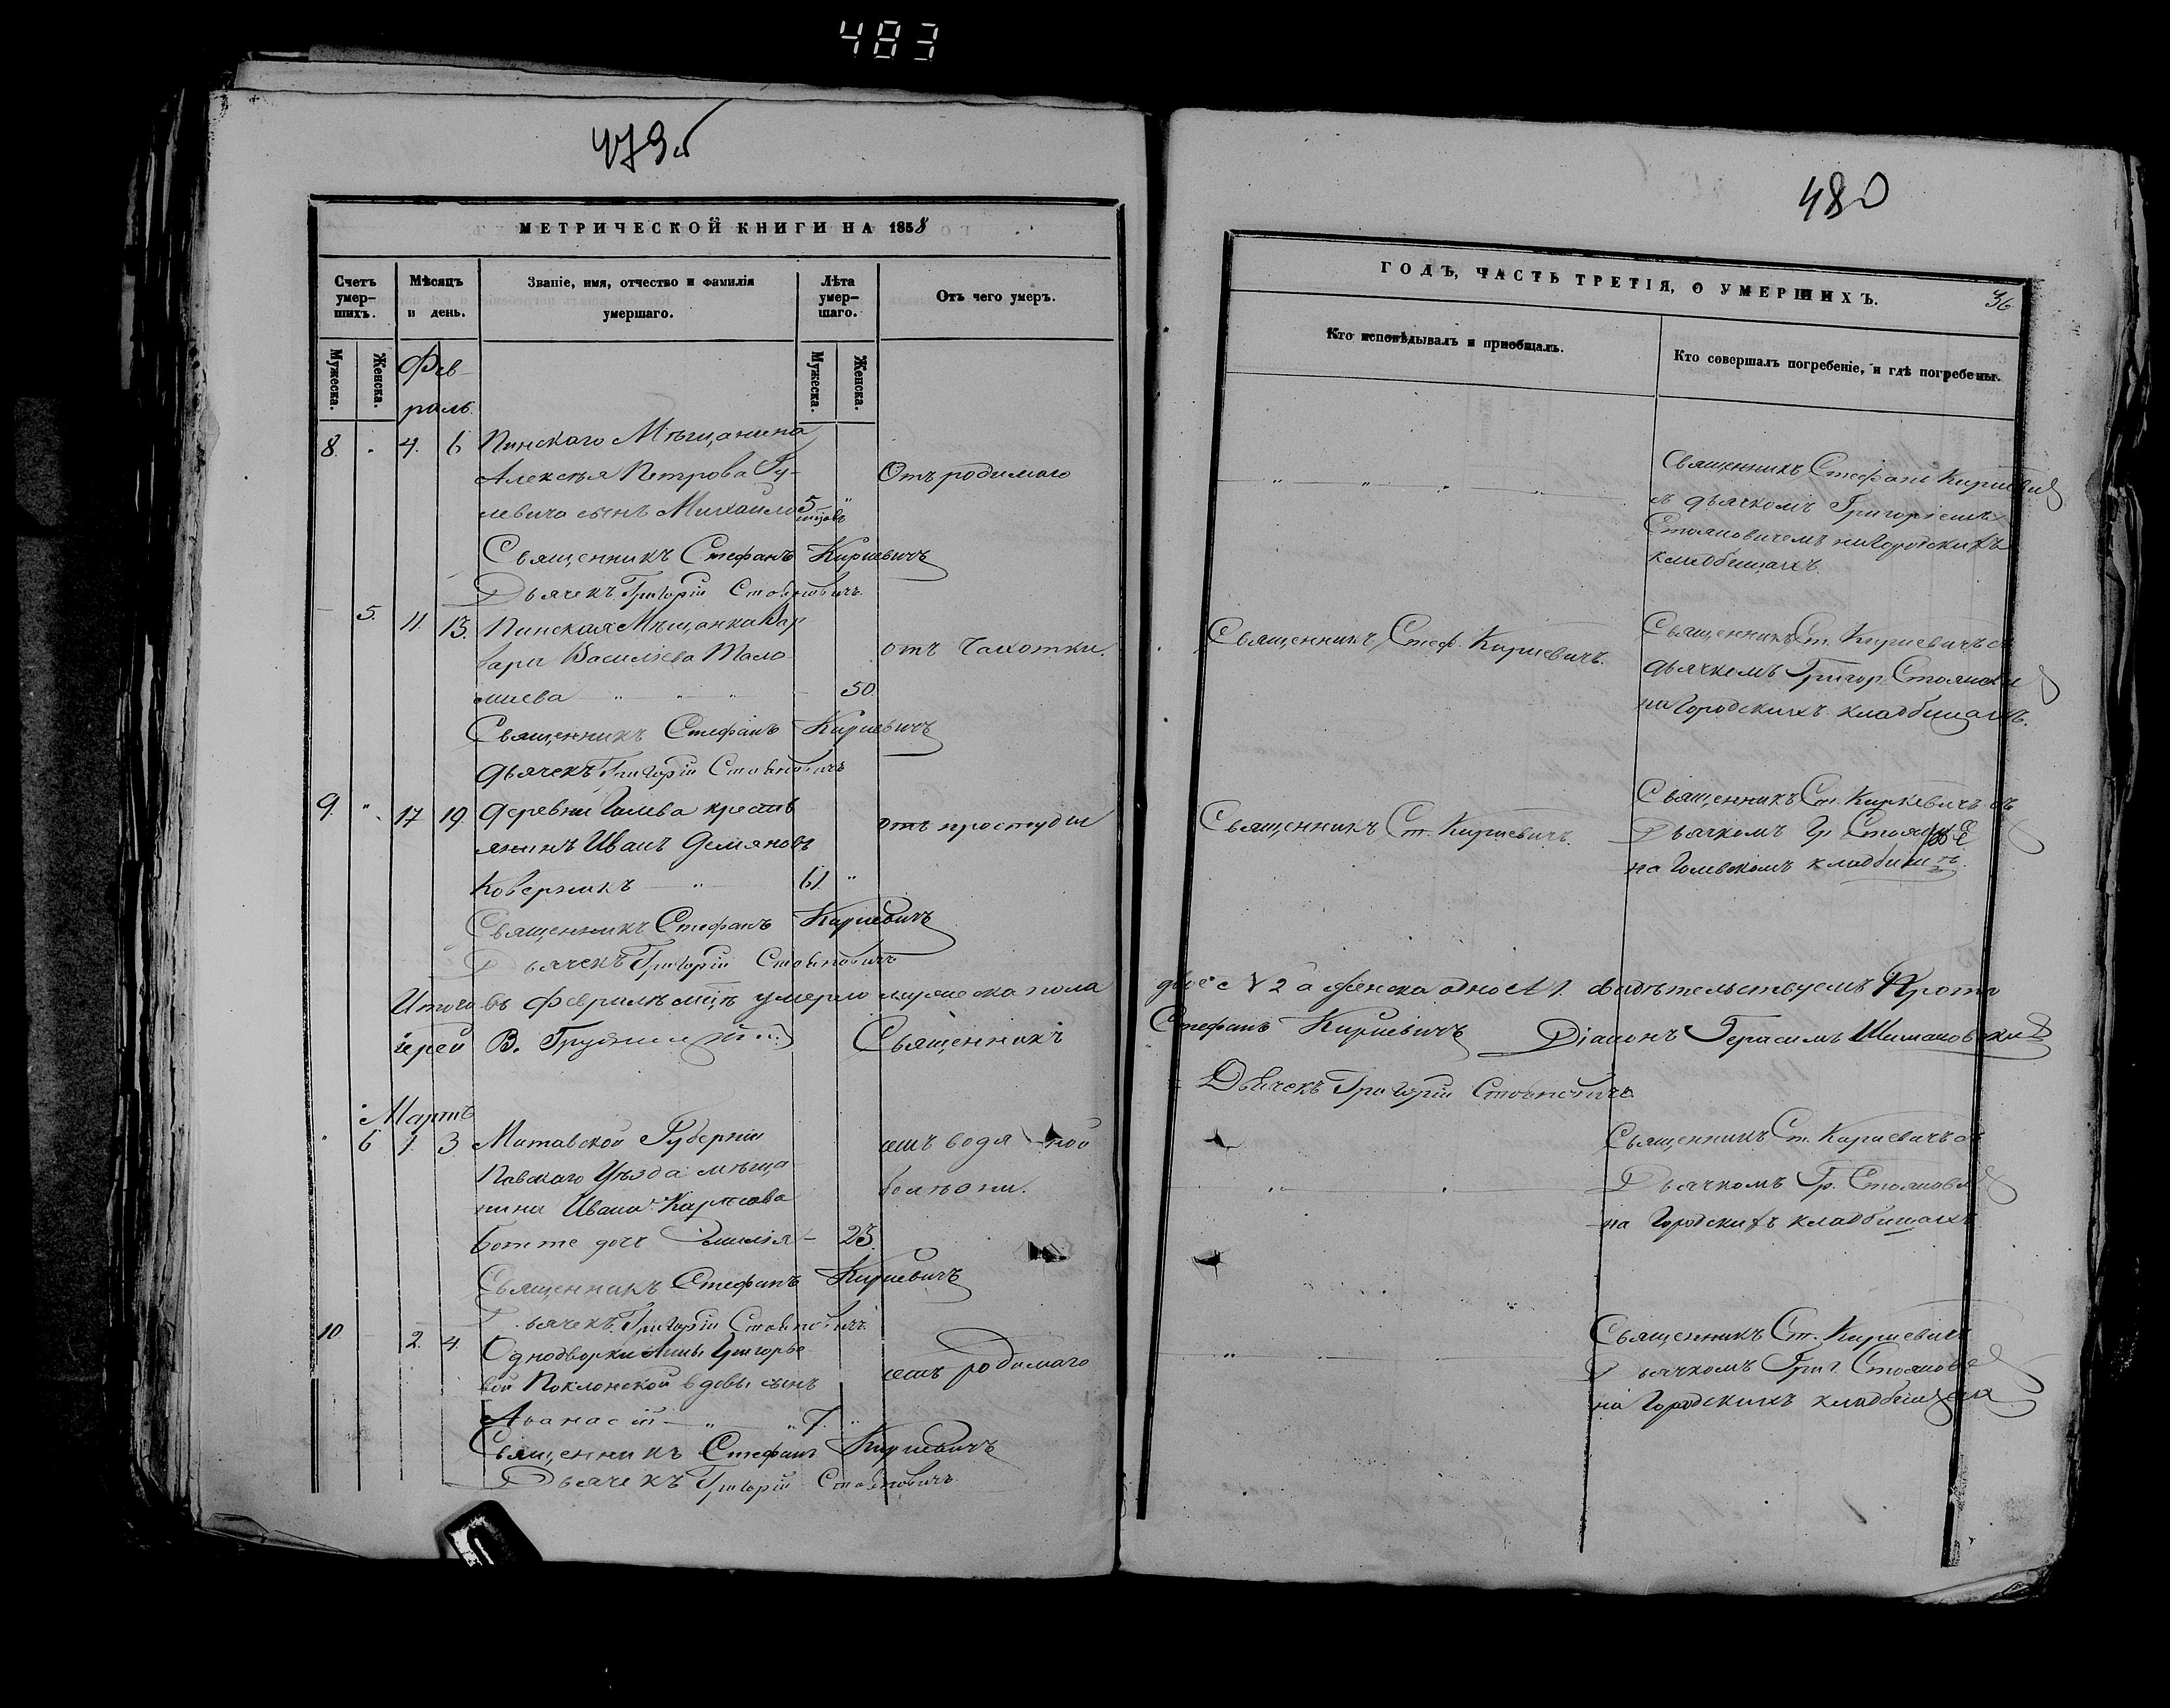 483
479об
МЕТРИЧЕСКОЙ КНИГИ НА 1858
Счетъ умер-шихъ.
Мѣсяцъ и день.
Званіе, имя, отчество и фамилія умершаго.
Лѣта умер-шаго.
Отъ чего умеръ.
Мужеска.
Женска.
Мужеска.
Женска.
Фев-
раль
8. 4. 6 Пинскаго Мѣщанина
Алексѣя Петрова Гу- Отъ родимаго
левича сынъ Михаилъ 5
Священникъ Стефанъ Кириевичъ
Дьячекъ Григорій Стояновичъ
5. 11. 13. Пинская Мѣщанка Вар
вара Василіева от чахотки.
50.
Священникъ Стефанъ Кириевичъ
Дьячекъ Григорій Стояновичъ
9. " 17 19. деревни Галева крестъ
янинъ Иванъ Демяновъ отъ простуды
Коверзикъ 61 "
Священникъ Стефанъ Кириевичъ
Дьячекъ Григорій Стояновичъ
Итого въ Февралѣ мцѣ умерло мужеска пола
іерей В. Священникъ
Мартъ
" 6 1. 3 Митавской Губерніи отъ водя ной
уѣзда мѣща- болѣзни.
нина Ивана
Ботте дочь Эмилія 23.
Священникъ Стефанъ Кириевичъ
Дьячекъ Григорій Стояновичъ
10 2. 4. Однодворки Анны Григорье-
вой Поклонской вдовы сынъ отъ родимаго
Аѳанасій 7. "
Священникъ Стефанъ Кириевичъ
Дьячекъ Григорій Стояновичъ
480
ГОДЪ, ЧАСТЬ ТРЕТІЯ, О УМЕРШИХЪ.
36
Кто исповѣдывалъ и пріобщалъ.
Кто совершалъ погребеніе, и гдѣ погребены.
Священникъ Стефанъ Кириевичъ
съ дьячкомъ Григоріемъ
Стояновичемъ на Городскихъ
кладбищахъ.
Священникъ Стеф. Кириевичъ.
Священникъ Ст. Кириевичъ съ
дьячкомъ Григор. Стоянов
на Городскихъ кладбищахъ.
Священникъ Ст. Кириевичъ.
Священникъ Ст. Кириевичъ съ
Дьячкомъ Гр. Стоянов
на Галевскомъ кладбищѣ.
двое N 2 а женска одно N 1. свидѣтельствуемъ Прото
Стефанъ Кириевичъ Діаконъ Герасимъ Шимановскій
Дьячекъ Григорій Стояновичъ
Священникъ Ст. Кириевичъ съ
Дьячкомъ Гр. Стоянов
на Городскихъ кладбищахъ
Священникъ Ст. Кириевичъ
Дьячкомъ Григ. Стоянов
на Городскихъ кладбищахъ